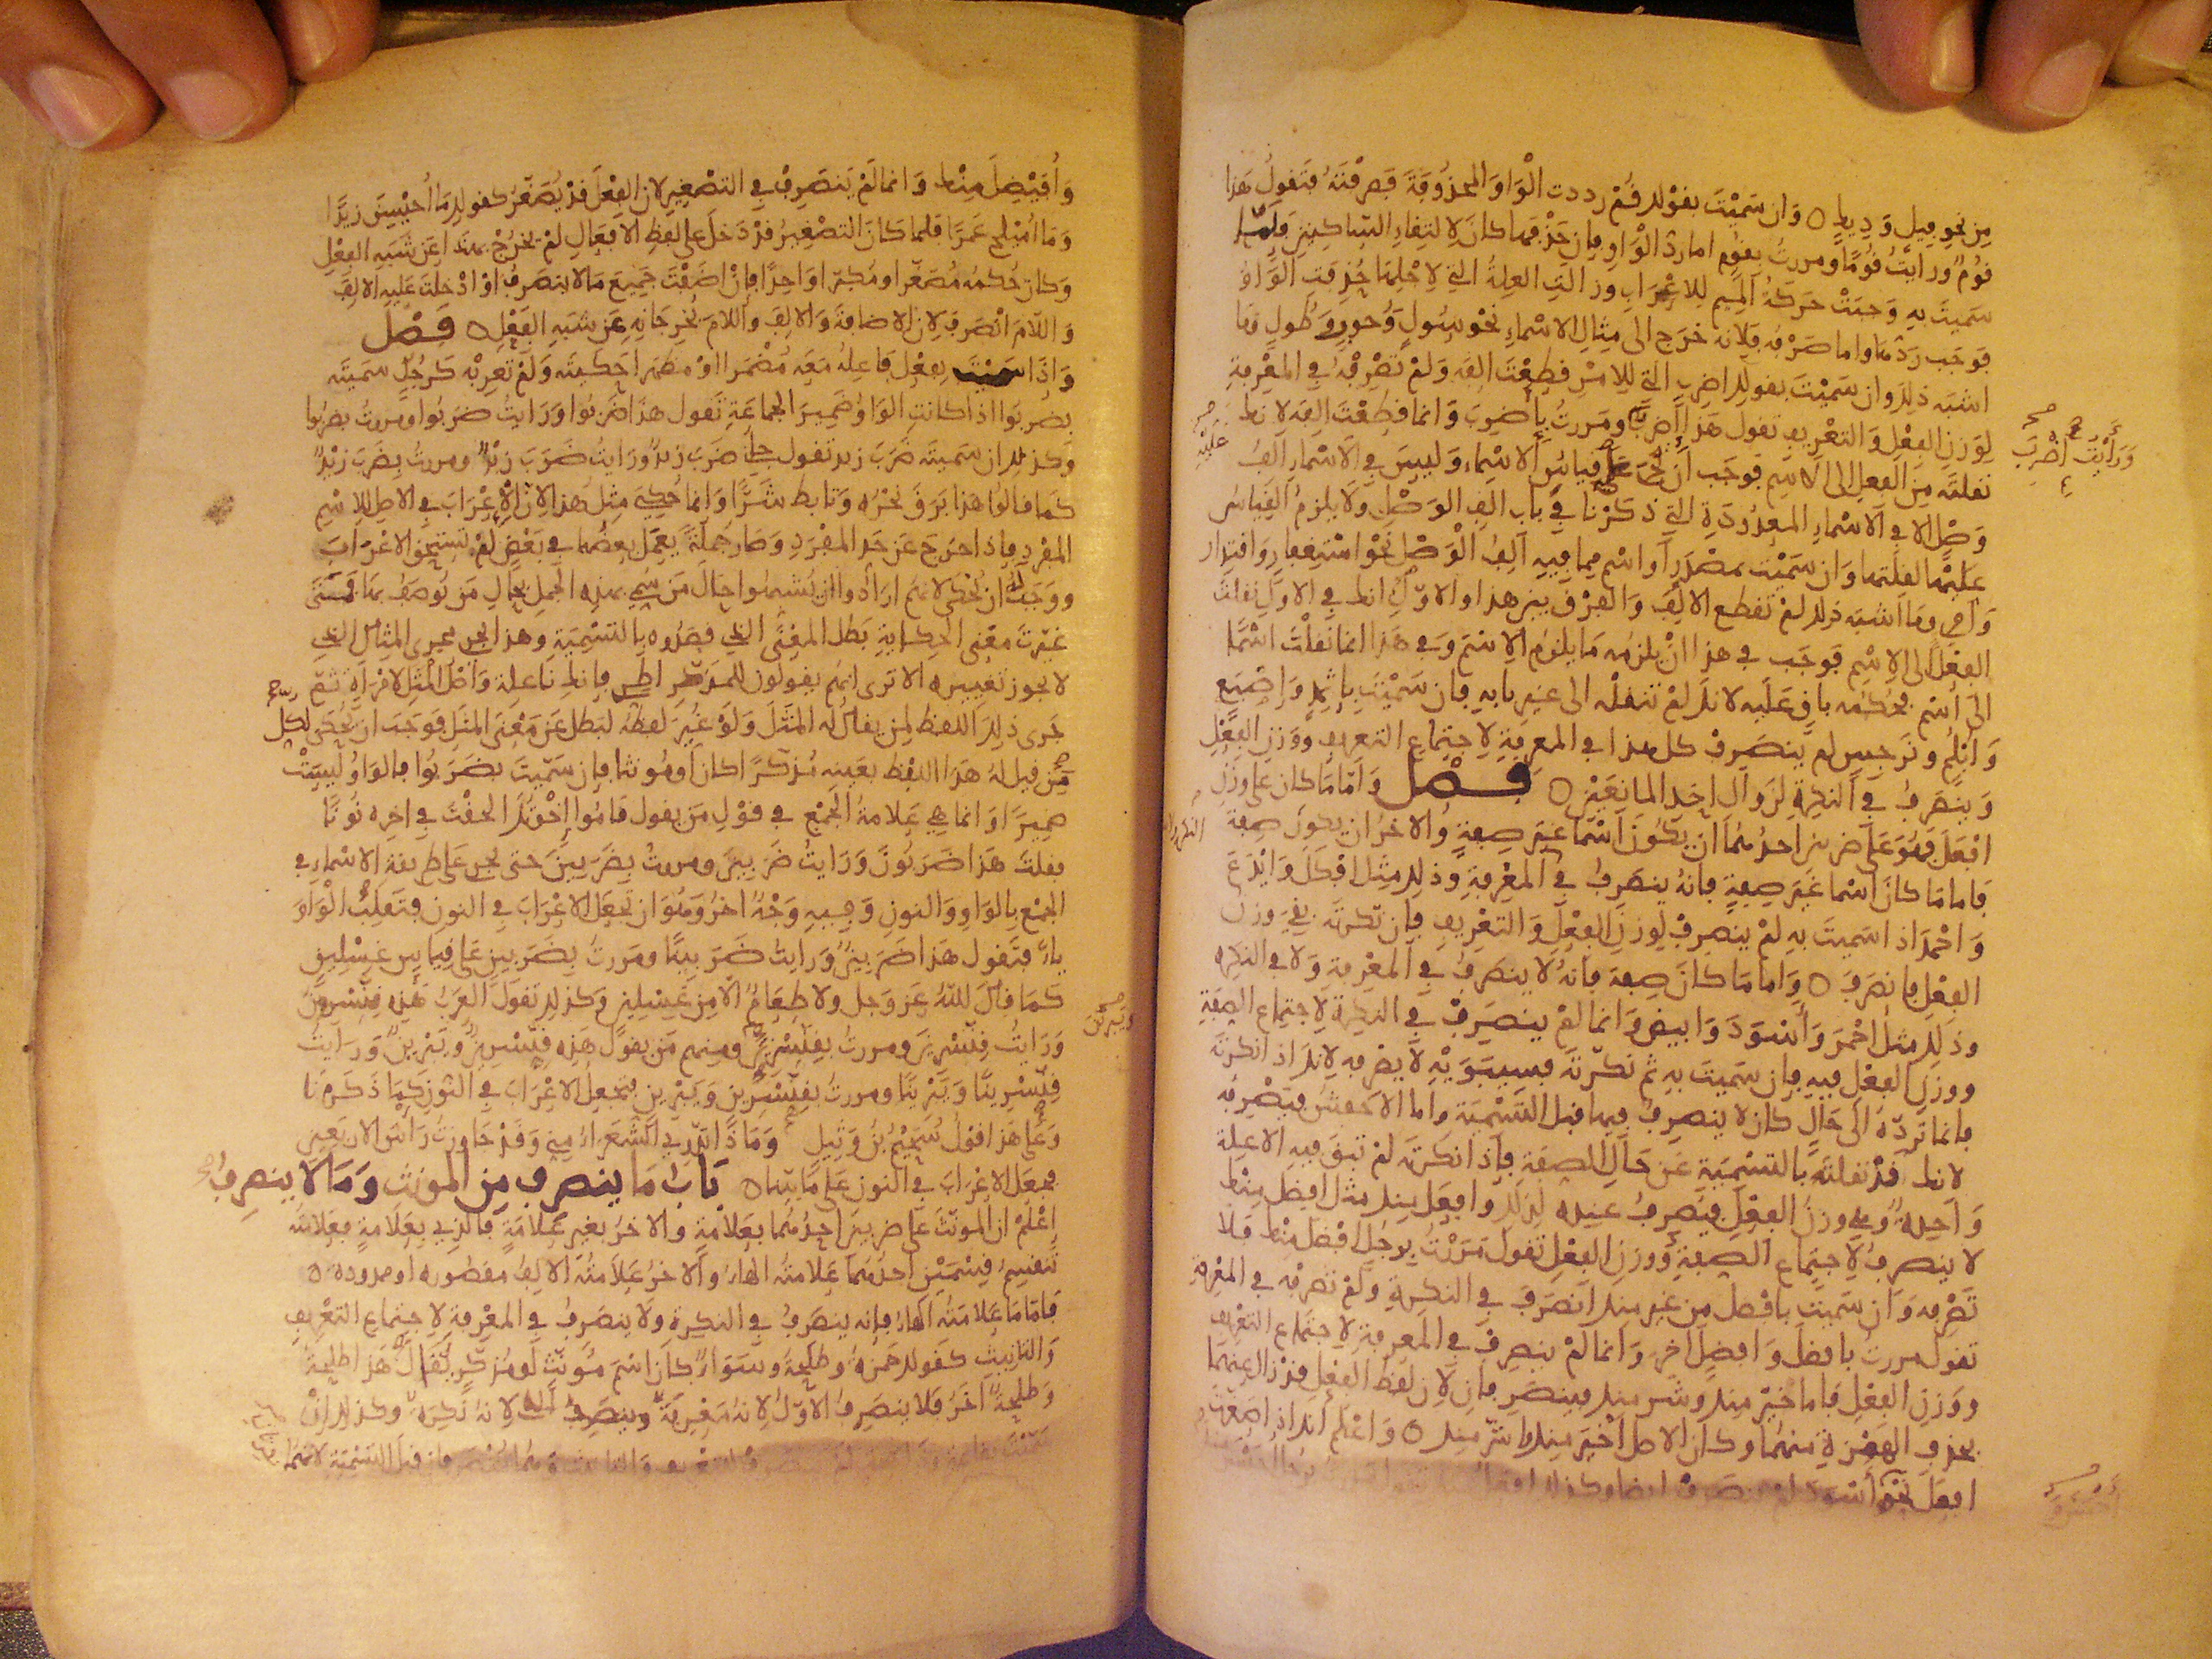 من نحو فيل وديك وان سميت بقولك قم رددت الواو المحذوفة فصرفته فتقول هذا
قوم ورايت قوما ومررت بقوم اما رد الواو فان حذفها كان لالتقاء الساكنين فلما
سميت به وجبت حركة الميم للاعراب وزالت العلة التي لاجلها حذفت الواو
فوجب ردها واما صرفه فلانه خرج الى مثال الاسماء نحو سول وحور وطول وما
اشبه ذلك وان سميت بقولك اضرب التي للامر قطعت الفه ولم تصرفه في المعرفة
لوزن الفعل والتعريف تقول هذا اضرب ومررت باضرب وانما قطعت الفه لانك
نقلته من الفعل الى الاسم فوجب ان تجري عليه قياس الاسماء وليس في الاسماء الف
وصل الا في الاسماء المعدودة التي ذكرنا في باب الف الوصل ولا يلزم القياس
عليها لقلتها وان سميت بمصدر او اسم مما فيه الف الوصل نحو استغفار واقتدار
وما اشبه ذلك لم تقطع الالف والفرق بين هذا والاول انك في الاول نقلت
الفعل الى الاسم فوجب في هذا ان يلزمه ما يلزم الاسم وفي هذا انما نقلت اسما
الى اسم فحكمه باق عليه لانك لم تنقله الى غير بابه فان سميت باثمد واصبع
وابلم ونرجس لم ينصرف كل هذا في المعرفة لاجتماع التعريف ووزن الفعل
وينصرف في النكرة لزوال احد المانعين فصل واما ما كان على وزن
افعل فهو على ضربين احدهما ان يكون اسما غير صفة والاخر ان يكون صفة
فاما ما كان اسما غير صفة فانه ينصرف في المعرفة وذلك مثل افكل وايدع
واحمد اذا سميت به لم ينصرف لوزن الفعل والتعريف فان نكرته بقي وزن
الفعل فانصرف واما ما كان صفة فانه لا ينصرف في المعرفة ولا في النكره
وذلك مثل احمر واسود وابيض وانما لم ينصرف في النكرة لاجتماع الصفة
ووزن الفعل فيه فان سميت به ثم نكرته فسيبويه لا يصرفه لانك اذا نكرته
فانما ترده الى حال كان لا ينصرف فيها قبل التسمية واما الاخفش فيصرفه
لانك قد نقلته بالتسمية عن حال الصفة فاذا نكرته لم تبق فيه الا علة
واحدة وهي وزن الفعل فيصرف عنده لذلك وافعل منك مثل افضل منك
لا ينصرف لاجتماع الصفة ووزن الفعل تقول مررت برجل افضل منك فلا
تصرفه وان سميت بافضل من غير منك انصرف في النكرة ولم تصرفه في المعرفة
تقول مررت بافضل وافضل اخر وانما لم ينصرف في المعرفة لاجتماع التعريف
ووزن الفعل فاما خير منك وشر منك فينصرفان لان لفظ الفعل قد زال عنهما
بحذف الهمزة منهما وكان الاصل اخير منك واشر منك واعلم انك اذا صغرت
افعل نحو اسود لم ينصرف ايضا وكذلك
ورايت اضرب
وافيضل منك وانما لم ينصرف في التصغير لان الفعل قد يصغر كقولك ما احيسن زيدا
وما اميلح عمرا فلما كان التصغير قد دخل على لفظ الافعال لم يخرج بهذا عن شبه الفعل
وكان حكمه مصغرا ومكبرا واحدا فان اضفت جميع ما لا ينصرف او ادخلت عليه الالف
واللام انصرف لان الاضافة والالف واللام تخرجانه عن شبه الفعل فصل
واذا سميت بفعل فاعله معه مضمرا او مظهرا حكيته ولم تعربه كرجل سميته
بضربوا اذا كانت الواو ضمير الجماعة تقول هذا ضربوا ورايت ضربوا ومررت بضربوا
وكذلك ان سميته ضرب زيد تقول جا ضرب زيد ورايت ضرب زيد ومررت بضرب زيد
كما قالوا هذا برق نحره وتابط شرا وانما حكي مثل هذا لان الاعراب في الاصل للاسم
المفرد فاذا خرج عن حد المفرد وصار جملة يعمل بعضها في بعض لم تستحق الاعراب
ووجب ان تحكى لانهم ارادوا ان يشبهوا حال من سمي بهذه الجمل بحال من يوصف بها فمتى
غيرت معنى الحكاية بطل المعنى الذي قصدوه بالتسمية وهذا يجري مجرى المثل الذي
لا يجوز تغييره الا ترى انهم يقولون للمذكر اطري فانك ناعلة واصل المثل لامراة ثم
جرى ذلك اللفظ لمن يقال له المثل ولو غير لفظه لبطل عن معنى المثل فوجب ان يحكى لكل
من قيل له هذا اللفظ بعينه مذكرا كان او مونثا فان سميت بضربوا والواو ليست
ضميرا وانما هي علامة الجمع في قول من يقول قاموا اخوتك الحقت في اخره نونا
فقلت هذا ضربون ورايت ضربين ومررت بضربين حتى يجري على طريقة الاسماء في
الجمع بالواو والنون وفيه وجه اخر وهو ان تجعل الاعراب في النون فتقلب الواو
ياء فتقول هذا ضربين ورايت ضربينا ومررت بضربين على قياس غسلين
كما قال الله عز وجل ولا طعام الا من غسلين وكذلك تقول العرب هذه قنسرون
ورايت قنسرين ومررت بقنسرين ومنهم من يقول هذه قنسرين ويبرين ورايت
قنسرينا ويبرينا ومررت بقنسرين ويبرين فتجعل الاعراب في النون كما ذكرنا
وعلى هذا قول سحيم بن وثيل وماذا تدري الشعراء مني وقد جاوزت راس الاربعين
فجعل الاعراب في النون على ما بينا باب ما ينصرف من المونث وما لا ينصرف
اعلم ان المونث على ضربين احدهما بعلامة والاخر بغير علامة فالذي بعلامة فعلامته
تنقسم قسمين احدهما علامته الهاء والاخر علامته الالف مقصورة او ممدوده
فاما ما علامته الهاء فانه ينصرف في النكرة ولا ينصرف في المعرفة لاجتماع التعريف
والتانيث كقولك حمزة وطلحة وسواء كان اسم مونث او مذكر تقول هذا طلحة
وطلحة اخر فلا ينصرف الاول لانه معرفة وينصرف لانه نكرة وكذلك ان